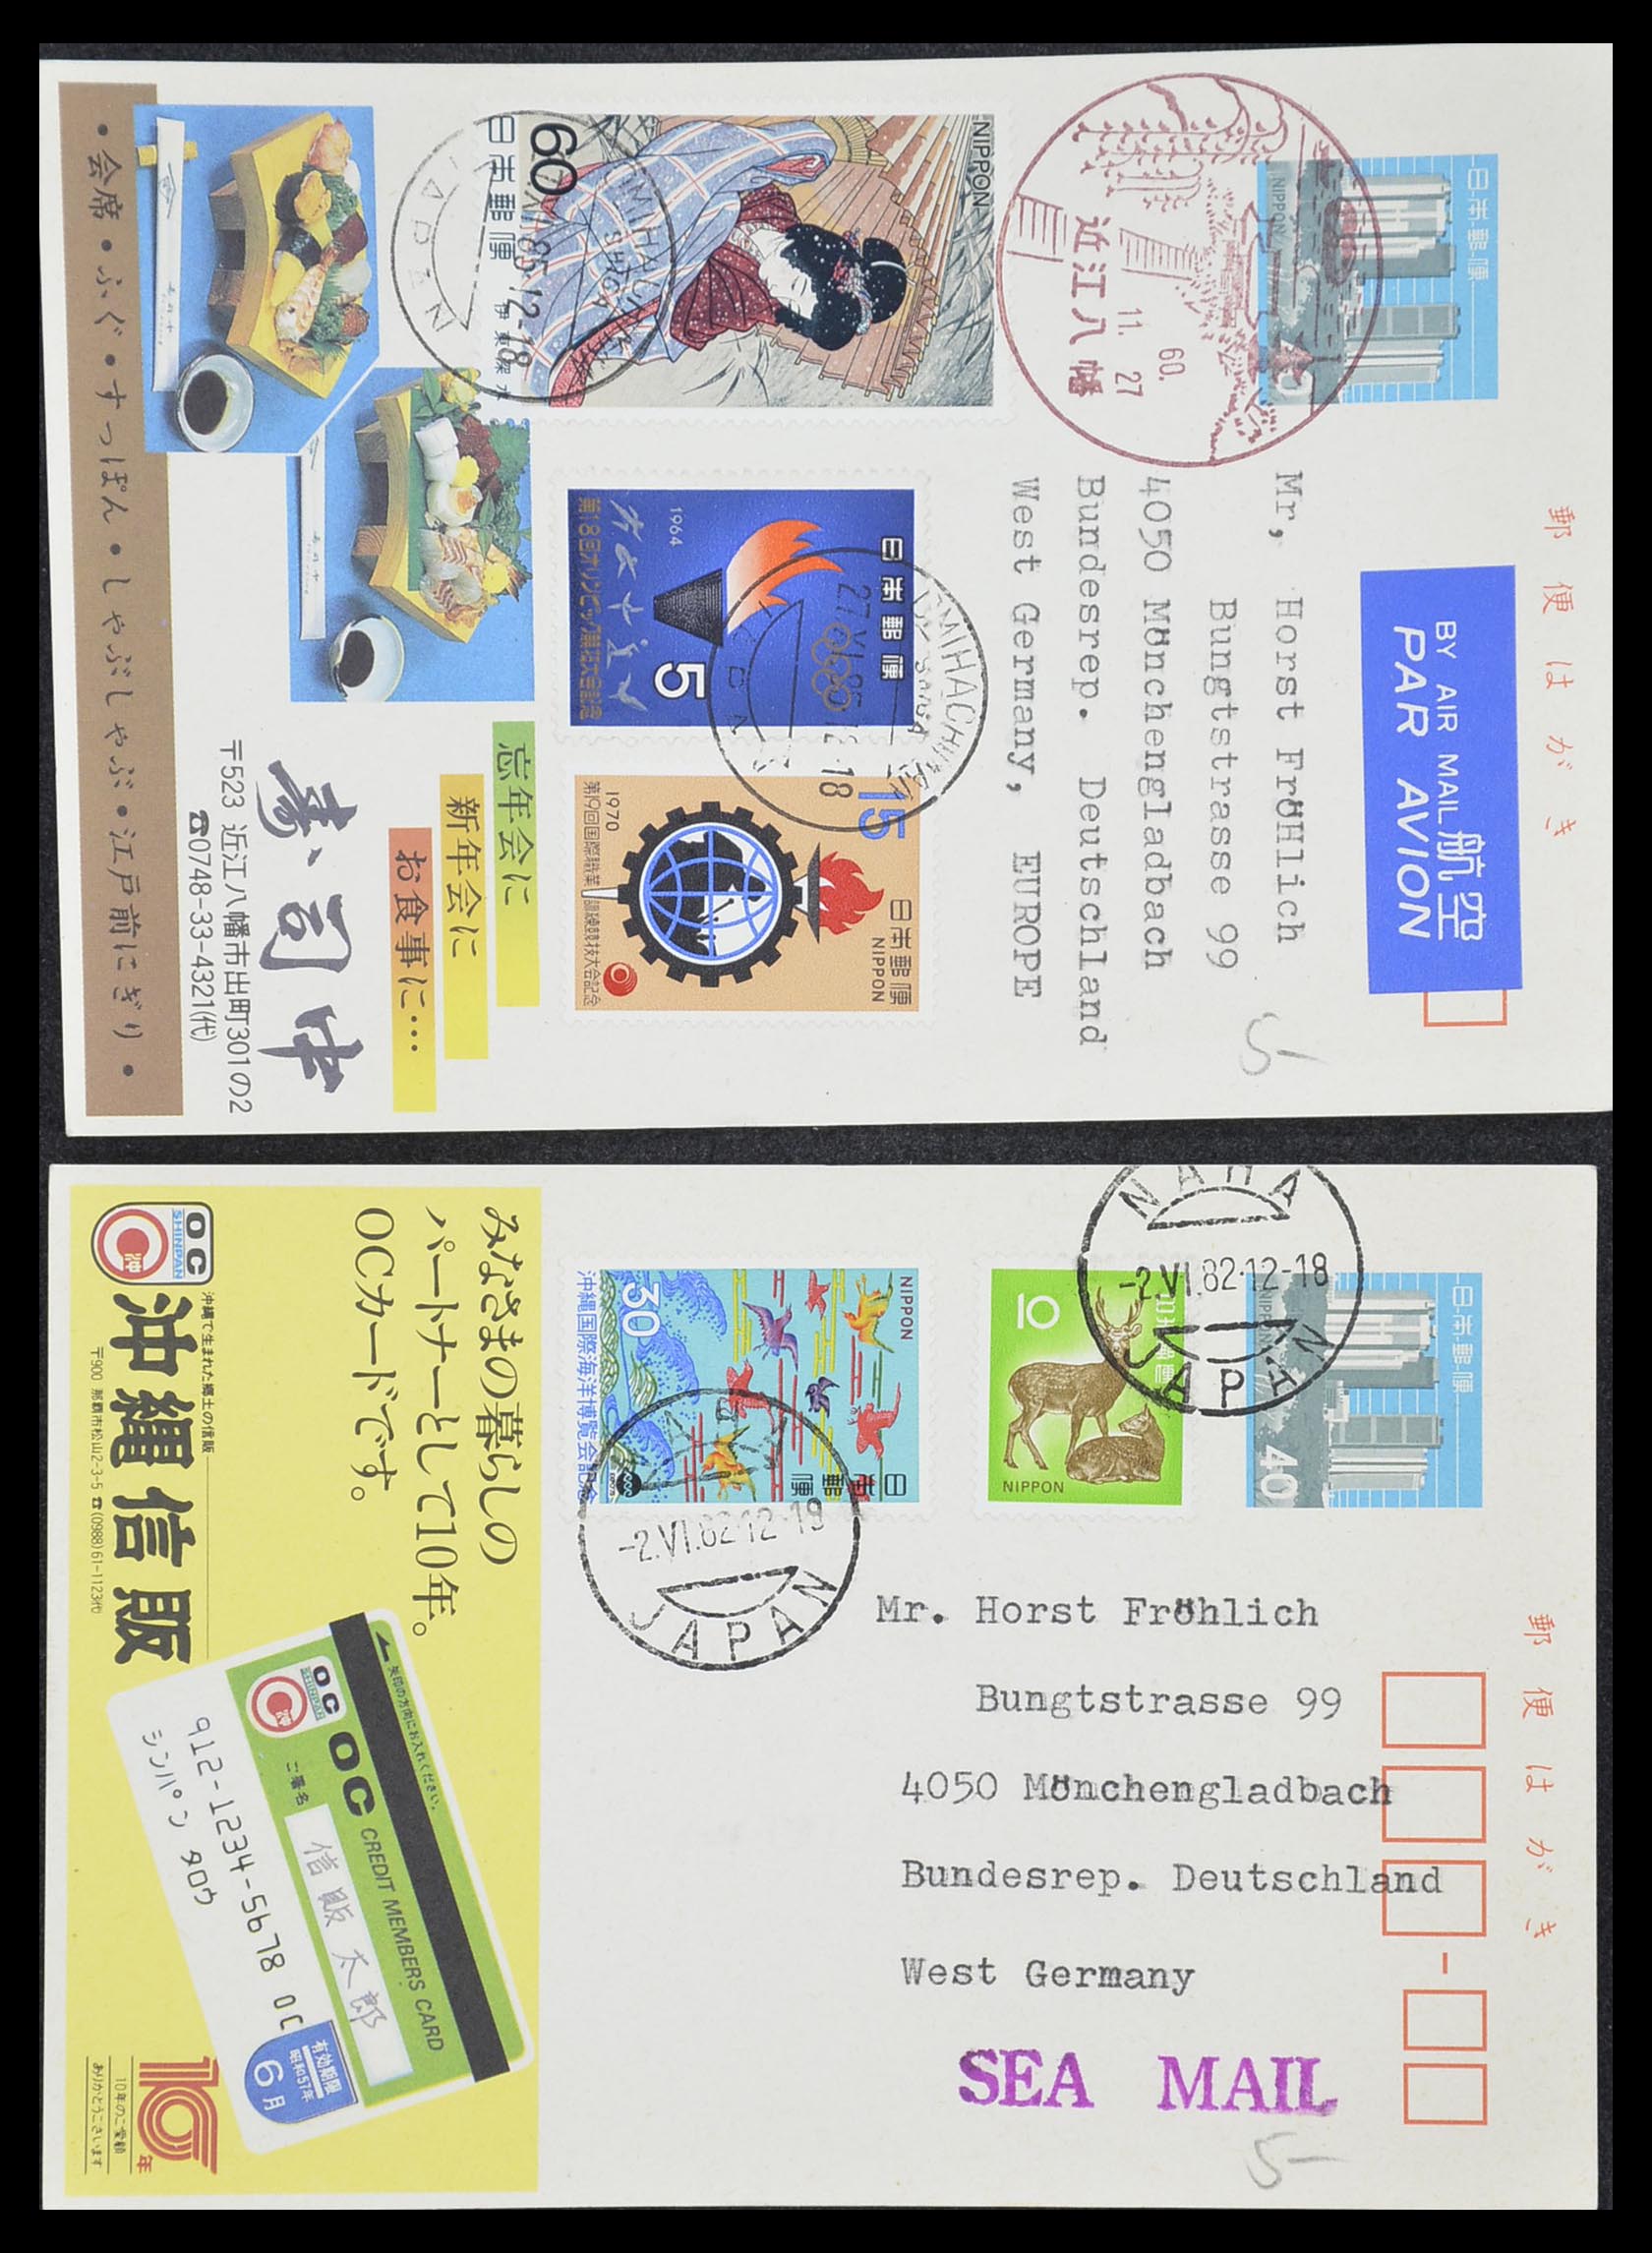 郵便はがき
BY AIR MAIL 航空
PAR AVION
日本郵便
NIPPON
40
近江八幡
60.
11. 27
Mr, Horst FröHlich
Bungtstrasse 99
4050 Mönchengladbach
Bundesrep. Deutschland
West Germany, EUROPE
NIPPON
60
日本郵便
JAPAN
日本郵便
1964
5
第18回オリンピック競技大会記念
27.XI.85 12-18
15
日本郵便
NIPPON
1970
第19回国際職業訓練競技大会記念
忘年会に
新年会に
お食事に…
寿司中
〒523 近江八幡市出町301の2
☎0748-33-4321(代)
•会席•ふぐ•すっぽん•しゃぶしゃぶ•江戸前にぎり•
郵便はがき
日本郵便
NIPPON
40
NAHA
-2.VI.82.12-18
JAPAN
10
NIPPON
NIPPON
30
日本郵便
沖縄国際海洋博覧会記念
1975
-2.VI.82.12-18
JAPAN
Mr. Horst Fröhlich
Bungtstrasse 99
4050 Mönchengladbach
Bundesrep. Deutschland
West Germany
SEA MAIL
5-
5-
みなさまの暮らしの
パートナーとして10年。
OCカードです。
OC
SHINPAN
沖
沖縄で生まれた郷土の信販
沖縄信販
〒900 那覇市松山2-3-5 ☎(0988)61-1123代
矢印の方向にお入れください。
OC
SHINPAN
沖
OC CREDIT MEMBERS CARD
ご署名
信販太郎
912-1234-5678 OC
シンパン タロウ
有効期限
昭和57年
6月
10年
10年のご愛顧
ありがとうございます